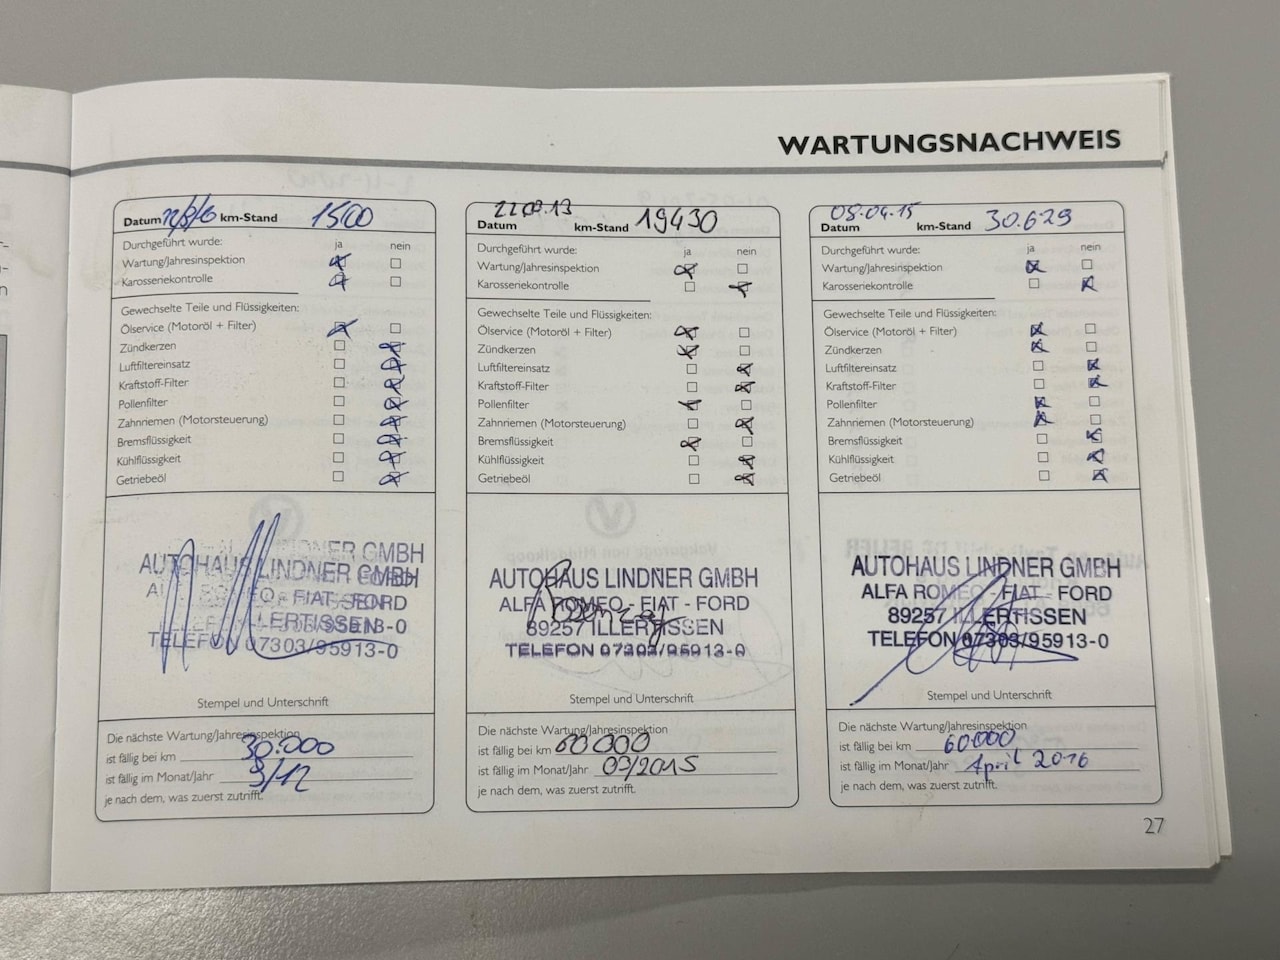 WARTUNGSNACHWEIS
Datum km-Stand 1500
Durchgeführt wurde: ja nein
Wartung/Jahresinspektion
Karosseriekontrolle
Gewechselte Teile und Flüssigkeiten:
Ölservice (Motoröl + Filter)
Zündkerzen
Luftfiltereinsatz
Kraftstoff-Filter
Pollenfilter
Zahnriemen (Motorsteuerung)
Bremsflüssigkeit
Kühlflüssigkeit
Getriebeöl
AUTOHAUS LINDNER GMBH
TELEFON 07303/95913-0
Stempel und Unterschrift
Die nächste Wartung/Jahresinspektion
ist fällig bei km 30.000
ist fällig im Monat/Jahr 9/12
je nach dem, was zuerst zutrifft.
Datum km-Stand 19430
Durchgeführt wurde: ja nein
Wartung/Jahresinspektion
Karosseriekontrolle
Gewechselte Teile und Flüssigkeiten:
Ölservice (Motoröl + Filter)
Zündkerzen
Luftfiltereinsatz
Kraftstoff-Filter
Pollenfilter
Zahnriemen (Motorsteuerung)
Bremsflüssigkeit
Kühlflüssigkeit
Getriebeöl
AUTOHAUS LINDNER GMBH
ALFA ROMEO - FIAT - FORD
89257 ILLERTISSEN
TELEFON 07303/95913-0
Stempel und Unterschrift
Die nächste Wartung/Jahresinspektion
ist fällig bei km 60000
ist fällig im Monat/Jahr 03/2015
je nach dem, was zuerst zutrifft.
Datum 08.04.15 km-Stand 30.629
Durchgeführt wurde: ja nein
Wartung/Jahresinspektion
Karosseriekontrolle
Gewechselte Teile und Flüssigkeiten:
Ölservice (Motoröl + Filter)
Zündkerzen
Luftfiltereinsatz
Kraftstoff-Filter
Pollenfilter
Zahnriemen (Motorsteuerung)
Bremsflüssigkeit
Kühlflüssigkeit
Getriebeöl
AUTOHAUS LINDNER GMBH
ALFA ROMEO - FIAT - FORD
89257 ILLERTISSEN
TELEFON 07303/95913-0
Stempel und Unterschrift
Die nächste Wartung/Jahresinspektion
ist fällig bei km 60000
ist fällig im Monat/Jahr April 2016
je nach dem, was zuerst zutrifft.
27